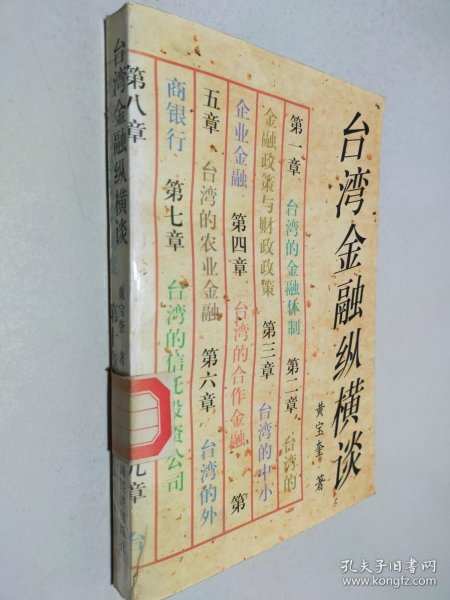 台湾金融纵横谈
黄宝奎 著
第一章 台湾的金融体制 第二章 台湾的
金融政策与财政政策 第三章 台湾的中小
企业金融 第四章 台湾的合作金融 第
五章 台湾的农业金融 第六章 台湾的外
商银行 第七章 台湾的信托投资公司
第八章
九章 台
台湾金融纵横谈
黄宝奎 著
孔夫子旧书网
www.kongfz.com